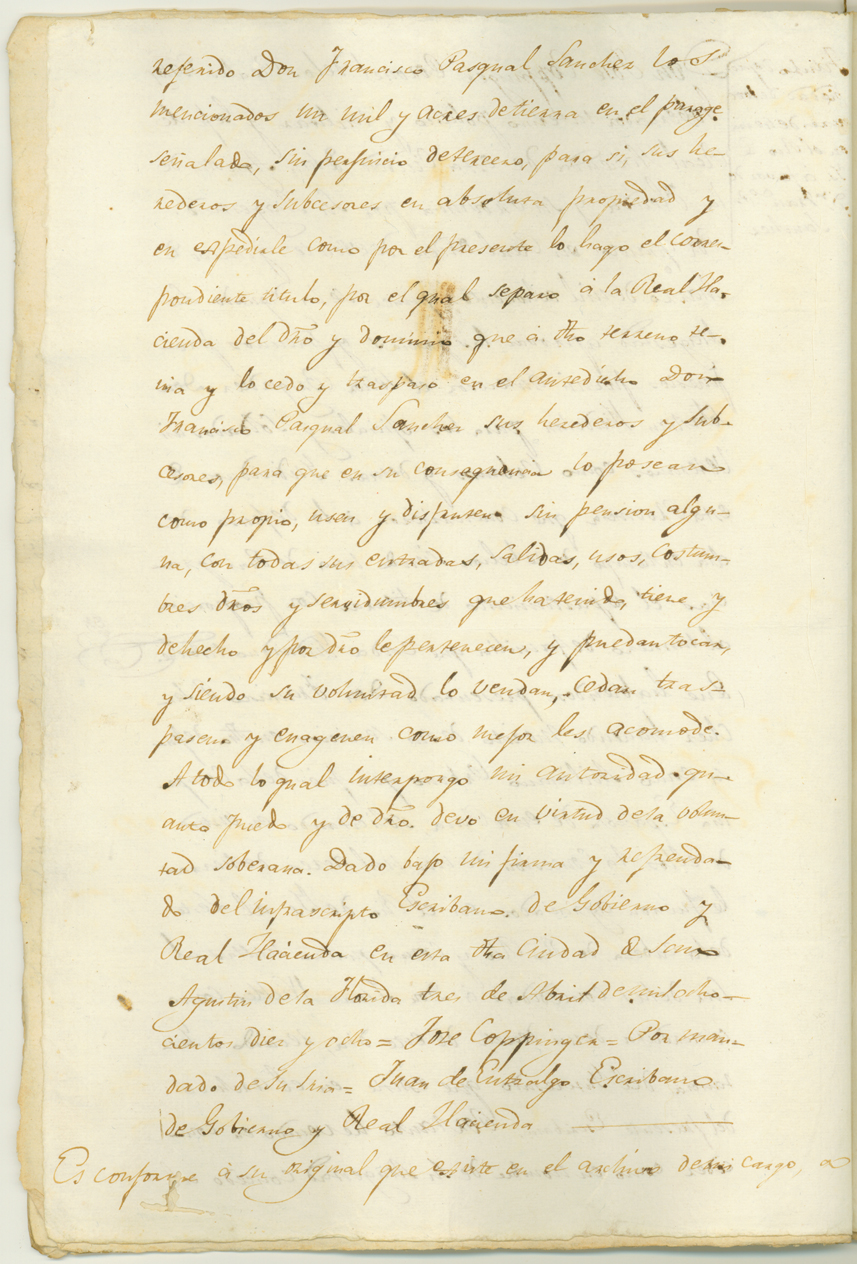 referido Don Francisco Pasqual Sanchez los
mencionados un mil y acres de tierra en el parage
señalado, sin perjuicio de tercero, para si, sus he-
rederos y subcesores en absoluta propiedad y
en expedirle como por el presente lo hago el corres-
pondiente titulo, por el qual separo á la Real Ha-
cienda del dro y dominio que á dho terreno te-
nia y lo cedo y traspaso en el antedicho Don
Francisco Pasqual Sanchez sus herederos y sub-
cesores, para que en su consequencia lo posean
como propio, usen y disfruten sin pension algu-
na, con todas sus entradas, salidas, usos, costum-
bres dros y servidumbres que ha tenido, tiene y
de hecho y por dro le pertenecen, y puedan tocar,
y siendo su voluntad lo vendan, cedan tras-
pasen y enagenen como mejor les acomode.
A todo lo qual interpongo mi autoridad qu-
anto puedo y de dro. devo en virtud de la volun-
tad soberana. Dado bajo mi firma y refrenda-
do del infrascripto Escribano de Gobierno y
Real Hacienda en esta dha Ciudad de San
Agustin de la Florida tres de Abril de mil ocho-
cientos diez y ocho = Jose Coppinger = Por man-
dado de su Sria = Juan de Entralgo Escribano
de Gobierno y Real Hacienda
Es conforme á su original que existe en el archivo de mi cargo, a